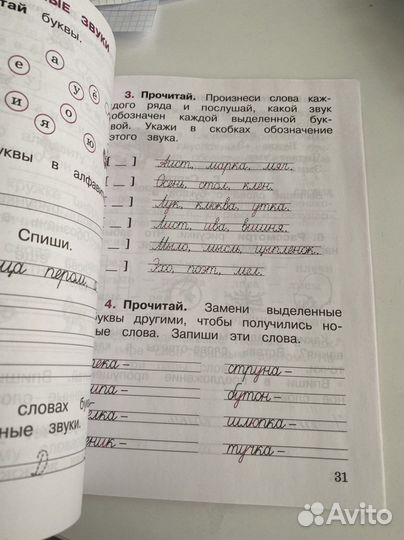 НЫЕ ЗВУКИ
тай буквы.
е а
у ё
и о
я ю
уквы в алфави
Спиши.
ца пером,
словах бук-
ные звуки.
3. Прочитай. Произнеси слова каж-
дого ряда и послушай, какой звук
обозначен каждой выделенной бук-
вой. Укажи в скобках обозначение
этого звука.
[ ] Аист, марка, мяч.
] Осень, стол, клен.
] Лук, клюква, утка.
] Лист, ива, вишня.
] Мыло, мысль, цыпленок.
] Эхо, поэт, мел.
4. Прочитай. Замени выделенные
буквы другими, чтобы получились но-
ые слова. Запиши эти слова.
река – струна –
ипа – бутон –
елка – шлюпка –
еник – турка –
31
Avito